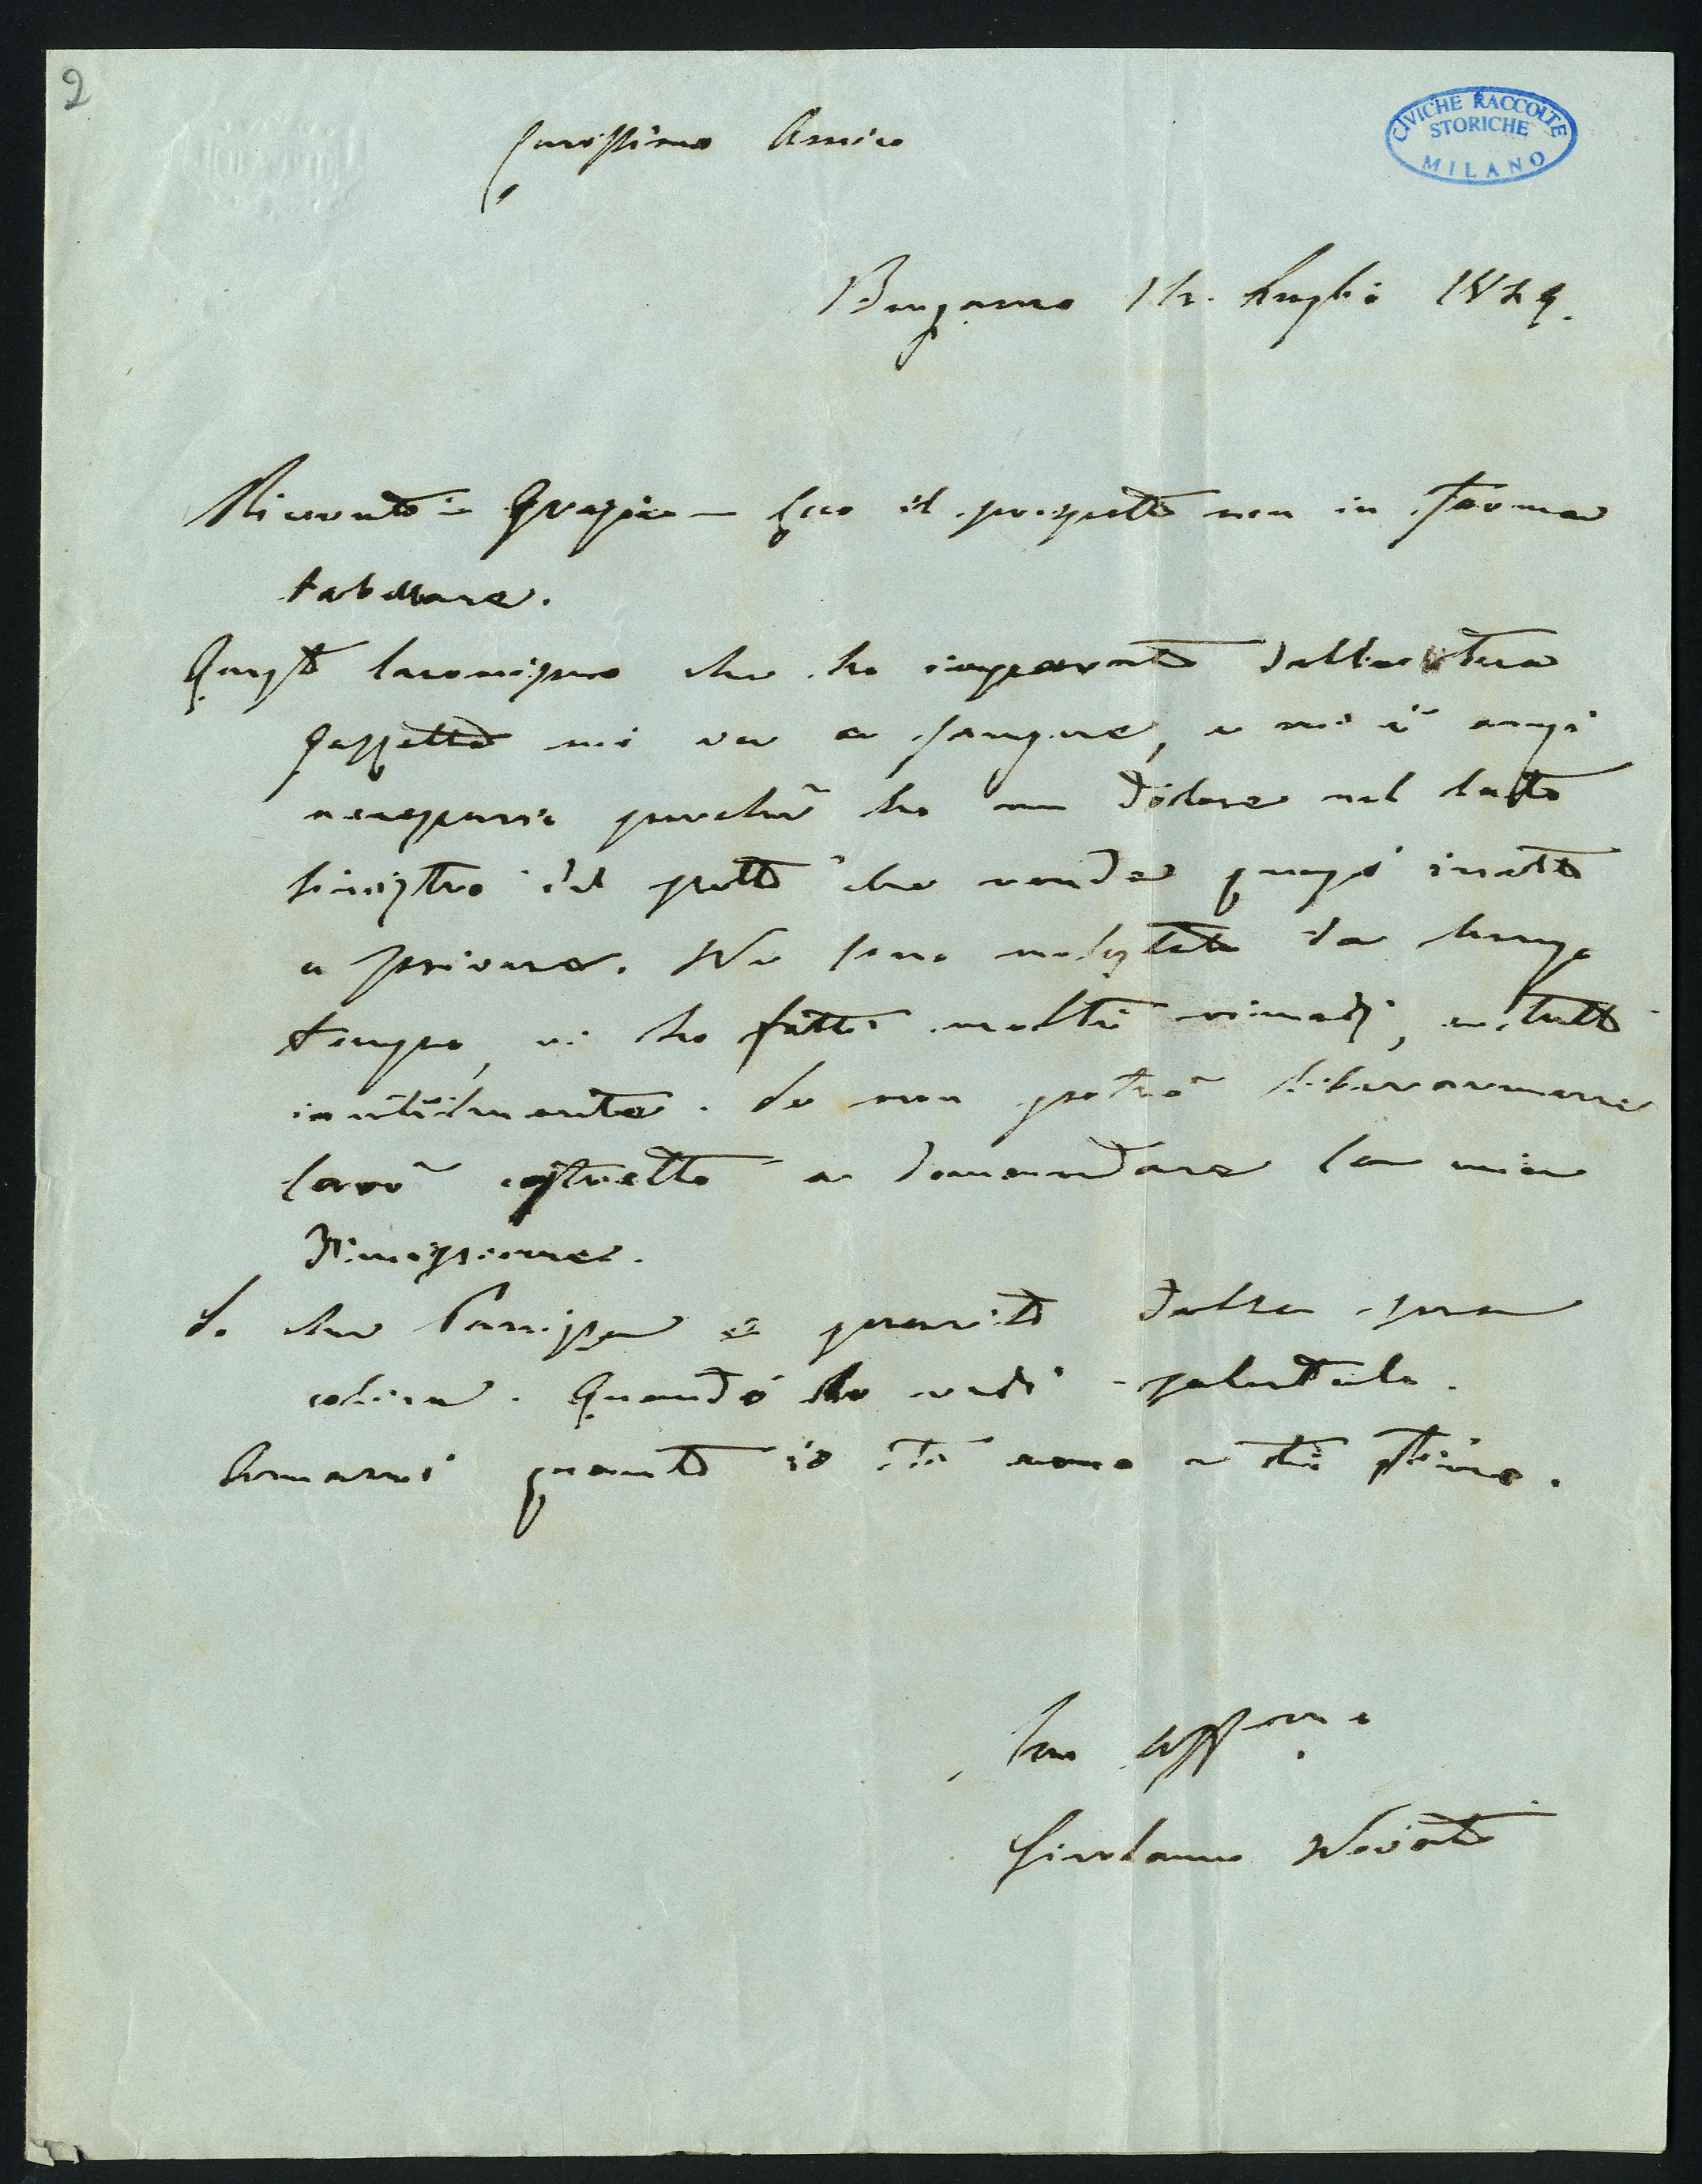 2
CIVICHE RACCOLTE
STORICHE
MILANO
Carissimo Amico
Bergamo Luglio
Ricevuto - Grazie - Ecco il prospetto non in forma
tabellare.
Questo laconismo che ho imparato dalla tua
gazzetta mi va a sangue, e mi è anzi
necessario perchè ho un dolore nel lato
sinistro del petto che rende quasi inetto
a scrivere. Ne sono molestato da lungo
tempo, vi ho fatti molti rimedj, e tutto
inutilmente. Se non potrò liberarmene
sarò costretto a domandare la mia
dimissione.
So che è guarito dalla sua
Quando lo vedi salutalo.
Amami quanto io ti amo e ti stimo.
tuo affmo
Girolamo Novati